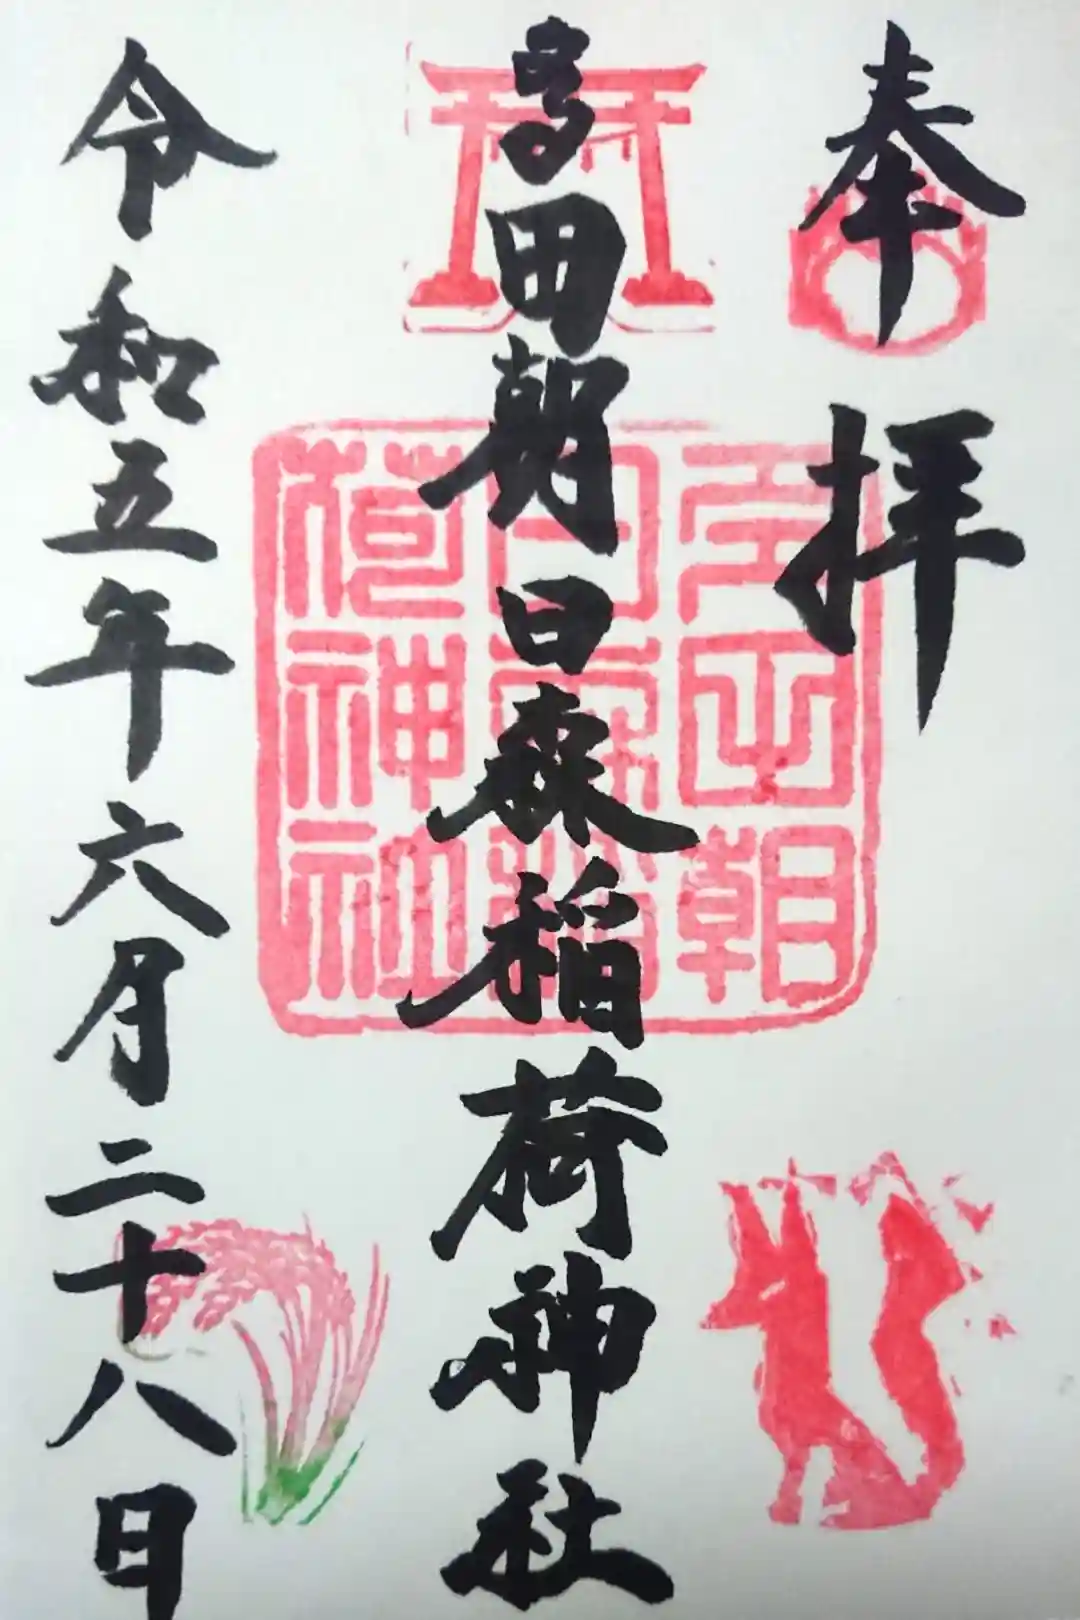 奉拝
高田朝日森稲荷神社
令和五年六月二十八日
荷神社